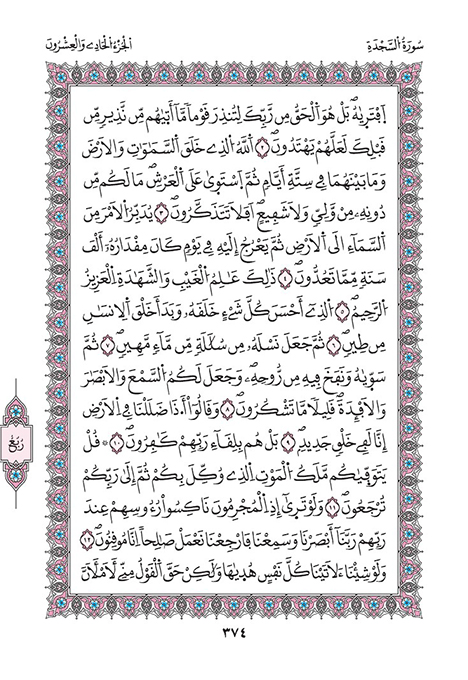 سُورَةُ السَّجْدَةِ
الجُزْءُ الْحَادِي وَالْعِشْرُونَ
اِفْتَر۪يٰهُۚ بَلْ هُوَ الْحَقُّ مِنْ رَبِّكَ لِتُنْذِرَ قَوْمًا مَٓا اَتٰيهُمْ مِنْ نَذ۪يرٍ مِنْ
قَبْلِكَ لَعَلَّهُمْ يَهْتَدُونَ ﴿٢﴾ اَللّٰهُ الَّذ۪ي خَلَقَ السَّمٰوَاتِ وَالْاَرْضَ
وَمَا بَيْنَهُمَا ف۪ي سِتَّةِ اَيَّامٍ ثُمَّ اسْتَوٰى عَلَى الْعَرْشِۜ مَا لَكُمْ مِنْ
دُونِه۪ مِنْ وَلِيٍّ وَلَا شَف۪يعٍۜ اَفَلَا تَتَذَكَّرُونَ ﴿٣﴾ يُدَبِّرُ الْاَمْرَ مِنَ
السَّمَٓاءِ اِلَى الْاَرْضِ ثُمَّ يَعْرُجُ اِلَيْهِ ف۪ي يَوْمٍ كَانَ مِقْدَارُهُٓ اَلْفَ
سَنَةٍ مِمَّا تَعُدُّونَ ﴿٤﴾ ذٰلِكَ عَالِمُ الْغَيْبِ وَالشَّهَادَةِ الْعَز۪يزُ
الرَّح۪يمُ ﴿٥﴾ اَلَّذ۪ٓي اَحْسَنَ كُلَّ شَيْءٍ خَلْقَهُ وَبَدَاَ خَلْقَ الْاِنْسَانِ
مِنْ ط۪ينٍ ﴿٦﴾ ثُمَّ جَعَلَ نَسْلَهُ مِنْ سُلَالَةٍ مِنْ مَٓاءٍ مَه۪ينٍ ﴿٧﴾ ثُمَّ
سَوّٰيهُ وَنَفَخَ ف۪يهِ مِنْ رُوحِه۪ وَجَعَلَ لَكُمُ السَّمْعَ وَالْاَبْصَارَ
وَالْاَفْـِٔدَةَۜ قَل۪يلًا مَا تَشْكُرُونَ ﴿٨﴾ وَقَالُٓوا ءَاِذَا ضَلَلْنَا فِي الْاَرْضِ
اِنَّا لَف۪ي خَلْقٍ جَد۪يدٍۜ ﴿٩﴾ بَلْ هُمْ بِلِقَٓاءِ رَبِّهِمْ كَافِرُونَ ﴿١٠﴾ قُلْ
يَتَوَفّٰيكُمْ مَلَكُ الْمَوْتِ الَّذ۪ي وُكِّلَ بِكُمْ ثُمَّ اِلٰى رَبِّكُمْ
تُرْجَعُونَ ﴿١١﴾ وَلَوْ تَرٰٓى اِذِ الْمُجْرِمُونَ نَاكِسُوا رُؤُ۫سِهِمْ عِنْدَ
رَبِّهِمْ رَبَّنَٓا اَبْصَرْنَا وَسَمِعْنَا فَارْجِعْنَا نَعْمَلْ صَالِحًا اِنَّا مُوقِنُونَ ﴿١٢﴾
وَلَوْ شِئْنَا لَاٰتَيْنَا كُلَّ نَفْسٍ هُدٰيهَا وَلٰكِنْ حَقَّ الْقَوْلُ مِنّ۪ي لَاَمْلَـَٔنَّ
رُبْعٌ
٣٧٤